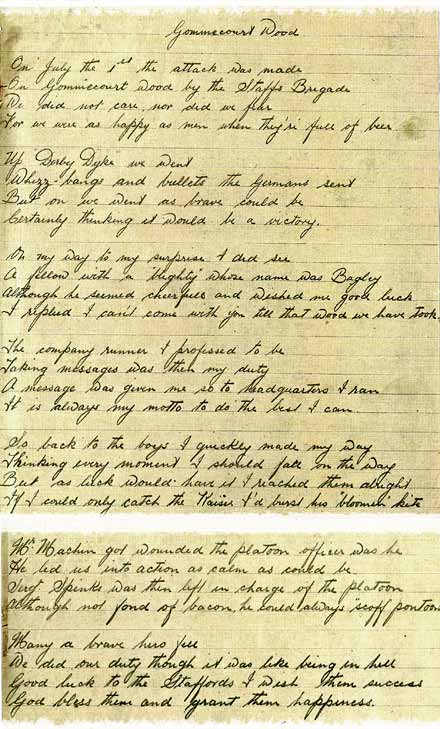 Gommecourt Wood
On July the 1st the attack was made
On Gommecourt wood by the Staffs Brigade
We did not care nor did we fear
For we were as happy as men when they're full of beer
Up Derby Dyke we went
Whizz-bangs and bullets the Germans sent
But on we went as brave could be
Certainly thinking it would be a victory.
On my way to my surprise I did see
A fellow with a 'blighty' whose name was Bagley
Although he seemed cheerful and wished me good luck
I replied I can't come with you till that wood we have took.
The company runner I professed to be
Taking messages was then my duty
A message was given me so to headquarters I ran
It is always my motto to do the best I can
So back to the boys I quickly made my way
Thinking every moment I should fall on the way
But as luck would have it I reached them alright
If I could only catch the Kaiser I'd burst his 'bloomin' kite
Mr Machin got wounded the platoon officer was he
He led us into action as calm as could be
Sergt Spinks was then left in charge of the platoon
Although not fond of bacon, he could always "scoff" pontoon
Many a brave hero fell
We did our duty though it was like being in hell
Good luck to the Staffords I wish them success
God bless them and grant them happiness.